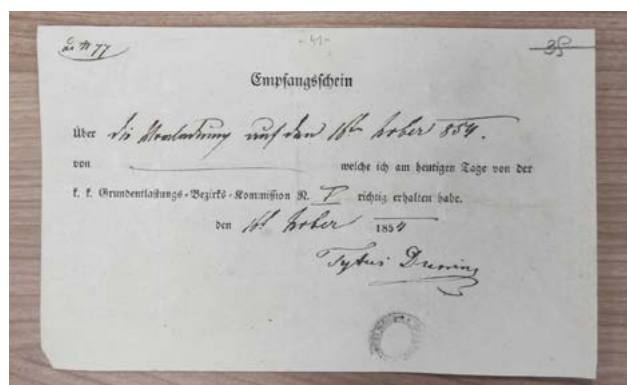 ad N 77
-41-
35
Empfangsschein
Über die Vorladung auf den 16ten 8ober 854.
von welche ich am heutigen Tage von der
k. k. Grundentlastungs-Bezirks-Kommission N. V richtig erhalten habe.
den 8ober 1854
Tytus